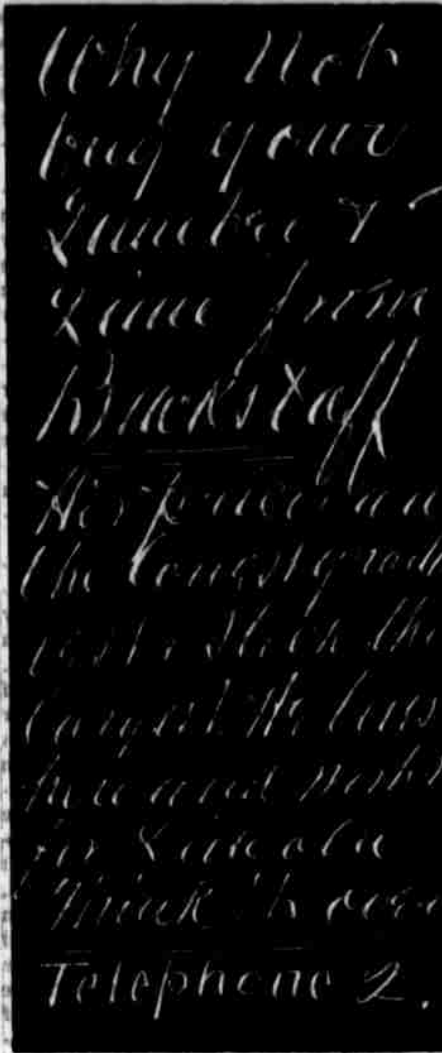 Why Not
buy your
Lumber &
Lime from
Buckstaff
His prices are
the lowest grade
best & Stock the
largest. He lives
here and works
for Lincoln
Think it over
Telephone 2.